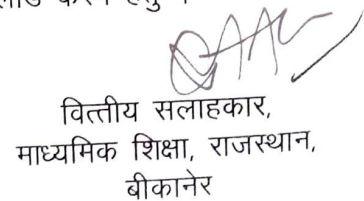 करने हेतु
वित्तीय सलाहकार,
माध्यमिक शिक्षा, राजस्थान,
बीकानेर